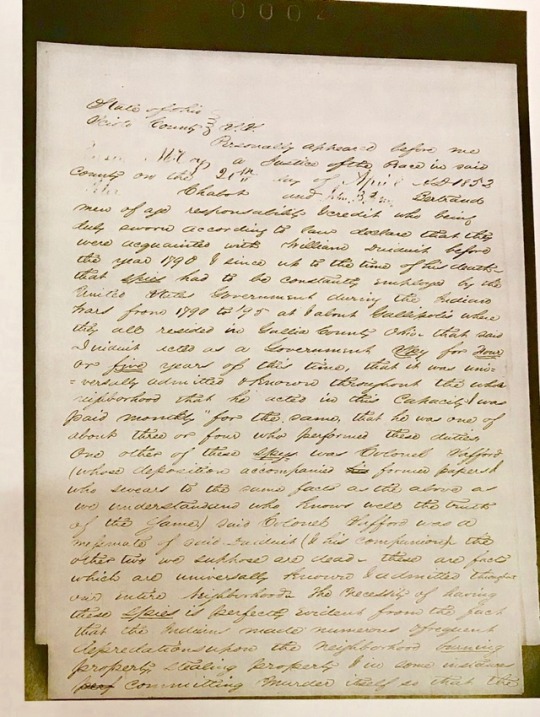 0002
State of Ohio
Scioto County } S.S.
Personally appeared before me
McCoy a Justice of the Peace in said
County on the 20th day of April A.D. 1853
Chabot and Wm. Bertrand
men of age responsibility & credit who being
duly sworn according to Law declare that they
were acquainted with William Duduit before
the year 1790 & since up to the time of his death
that spies had to be constantly employed by the
United States Government during the Indian
Wars from 1790 to 95 at & about Gallipolis where
they all resided in Gallia County Ohio that said
Duduit acted as a Government Spy for four
or five years of this time, that it was uni-
=versally admitted & known throughout the whole
neighborhood that he acted in this Capacity & was
paid monthly for the same, that he was one of
about three or four who performed these duties
One other of these spies was Colonel Safford
(whose deposition accompanied former papers &
who swears to the same facts as the above as
we understand and who knows well the truth
of the same) said Colonel Safford was a
messmate of said Duduit (& his companion) the
other two we suppose are dead – these are facts
which are universally known & admitted through
our entire neighborhood. The necessity of having
these spies is perfectly evident from the fact
that the Indians made numerous & frequent
depredations upon the neighborhood burning
property stealing property & in some instances
committing murder itself so that the